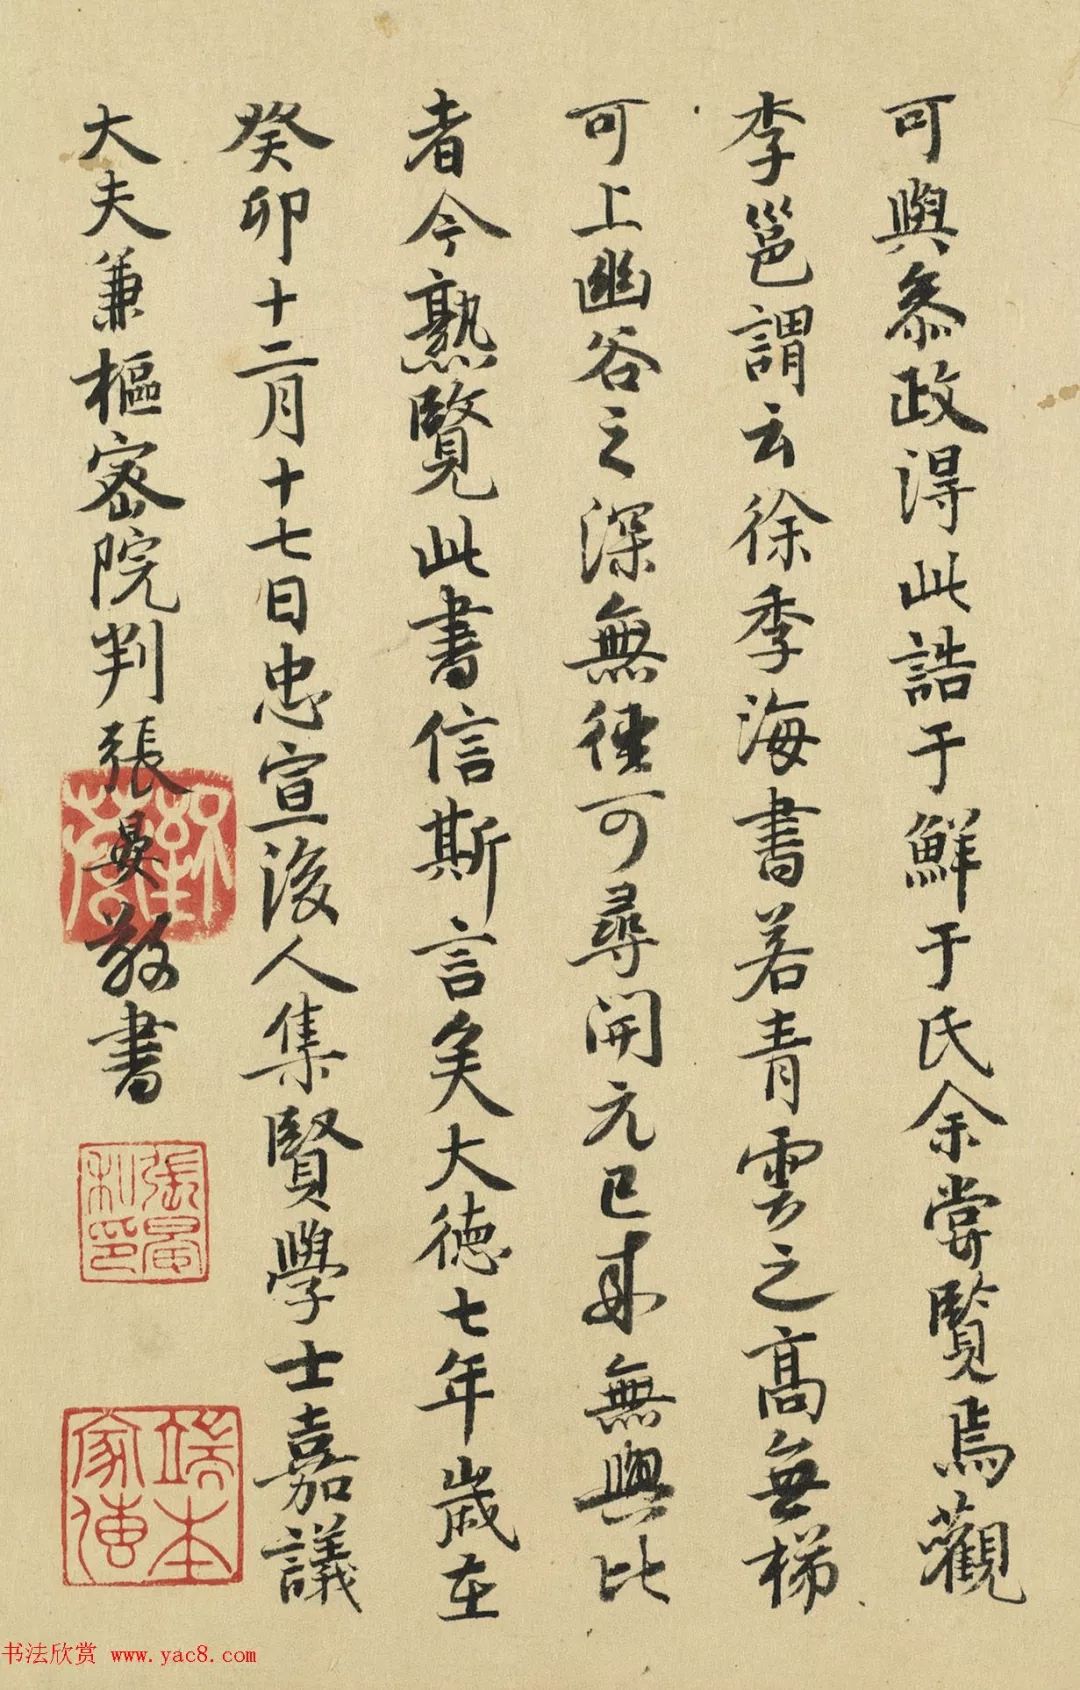 可與叅政得此誥于鮮于氏余嘗覽焉觀
李邕謂云徐季海書若青雲之高無梯
可上幽谷之深無徑可尋開元已來無與比
者今熟覽此書信斯言矣大德七年歲在
癸卯十二月十七日忠宣後人集賢學士嘉議
大夫兼樞密院判張晏敬書
張晏私印
端本家傳
书法欣赏 www.yac8.com